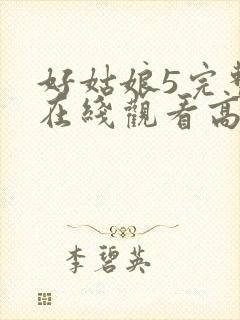 好姑娘5完整
在线觀看高
李碧英